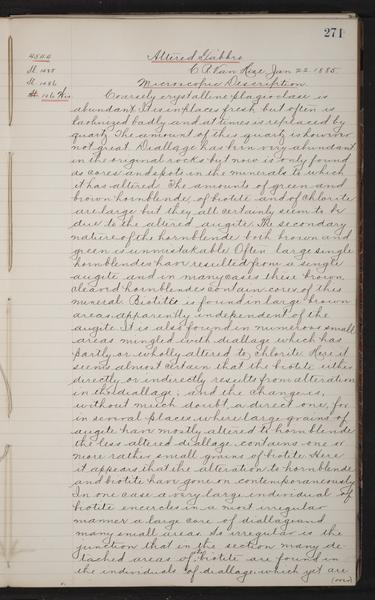 271
Altered Gabbro
C R Van Hise Jan 22 1885.
Microscopic Description.
Coarsely crystalline plagioclase is
abundant. It is in places fresh but often is
kaolinized badly and at times is replaced by
quartz. The amount of this quartz is however
not great. Diallage has been very abundant
in the original rocks but now is only found
as cores and spots in the minerals to which
it has altered. The amounts of green and
brown hornblende, of biotite and of chlorite
are large but they all certainly seem to be
due to the altered augite. The secondary
nature of the hornblende both brown and
green is unmistakable. Often large single
hornblendes have resulted from a single
augite and in many cases these brown
hornblendes contain cores of this
mineral. Biotite is found in large brown
areas apparently independent of the
augite. It is also found in numerous small
areas mingled with diallage which has
partly or wholly altered to chlorite. Here it
seems almost certain that the biotite either
directly or indirectly results from alteration
in the diallage, and the change is,
without much doubt a direct one, for
in several places where large grains of
augite have mostly altered to hornblende
the less altered diallage contains one or
more rather small grains of biotite. Here
it appears that the alteration to hornblende
and biotite have gone on contemporaneously
In one case a very large individual of
biotite encircles in a most irregular
manner a large core of diallage and
many small areas. So irregular is the
junction that in the section many de-
tached areas of the biotite are found in
the individuals of diallage which yet are
(over)